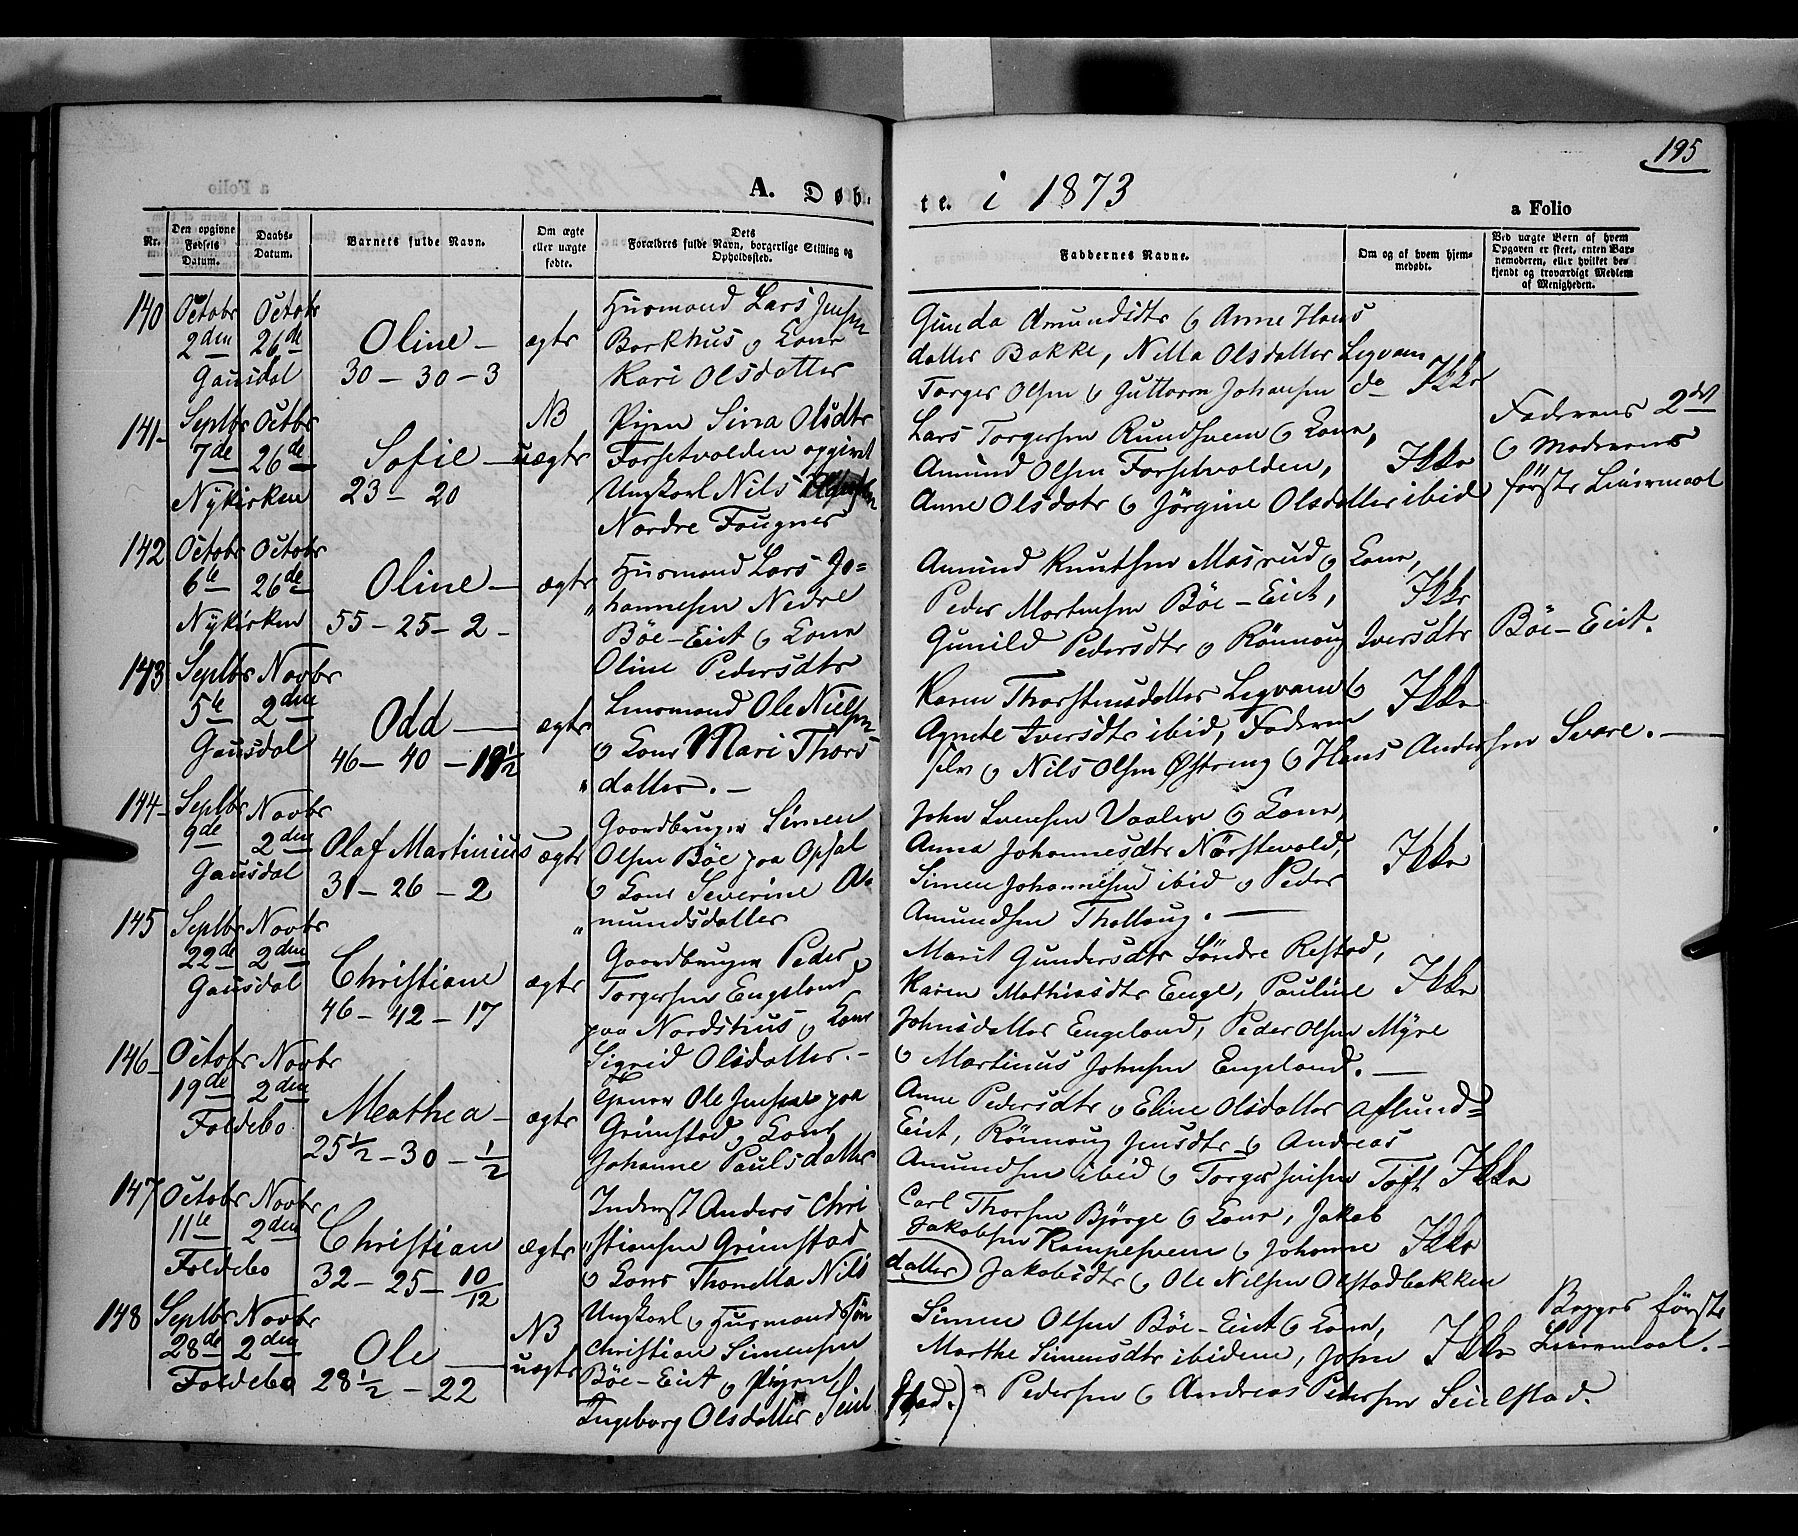 195
A. Døb-
te. i 1873
a Folio
a Folio
Nr.
Den opgivne Fødsels Datum.
Daabs-Datum.
Barnets fulde Navn.
Om ægte eller uægte fødte.
Dets Forældres fulde Navn, borgerlige Stilling og Opholdssted.
Faddernes Navne.
Om og af hvem hjemmedøbt.
Ved uægte Børn af hvem Opgaven er skeet, enten Barnemoderen, eller hvilket bekjendt og troværdigt Medlem af Menigheden.
140
Octobr 2den
Octobr 26de
Gausdal
Oline
30 - 30 - 3
ægte
Husmand Lars Jensen
Borkhus og Kone
Kari Olsdatter
Gunda Amundsdtr og Anne Hans
datter Bakke, Nilla Olsdatter Legvam
Torger Olsen og Guttorm Johansen do
Ikke
141
Septbr 7de
Octbr 26de
Nykirken
Sofie
23 - 20
NB
uægte
Pigen Sina Olsdtr
Forsetvolden opgivet
Ungkarl Nils
Nordre Fougner
Lars Torgersen Rundsveen og Kone,
Amund Olsen Forsetvolden,
Anne Olsdatr og Jörgine Olsdatter ibid
Ikke
Faderens 2det
og Moderens
første Leiermaal
142
Octobr 6te
Octobr 26de
Nykirken
Oline
55 - 25 - 2 -
ægte
Husmand Lars Jo-
hannesen Nedre
Böe-Eiet og Kone
Oline Pedersdtr
Amund Knutsen Masrud og Kone,
Peder Mortensen Böe-Eiet,
Gunild Pedersdtr og Rönnoug Iversdtr Böe-Eiet.
Ikke
143
Septbr 5te
Novbr 2den
Gausdal
Odd
46 - 40 - 19½
ægte
Ole Nielsen
og Kone Mari Thors
datter. -
Karen Thorstensdatter Legvam og
Agnete Iversdtr ibid, Faderen
selv og Nils Olsen Østreng og Hans Andersen Svare. -
Ikke
144
Septbr 9de
Novbr 2den
Gausdal
Olaf Martinius
31 - 26 - 2
ægte
Gaardbruger Simen
Olsen Böe paa Opsal
og Kone Severine A-
mundsdatter
John Svensen Vaalen og Kone,
Anna Johannesdtr Nörstevold,
Simen Johannesen ibid og Peder
Amundsen Thallaug. -
Ikke
145
Septbr 22de
Novbr 2den
Gausdal
Christiane
46 - 42 - 17
ægte
Gaardbruger Peder
Torgersen Engeland
paa Nordshus og Kone
Sigrid Olsdatter. -
Marit Gundersdtr Söndre Refstad,
Karen Mathiasdtr Enge, Pauline
Johnsdatter Engeland, Peder Olsen Myre
og Martinus Johnsen Engeland. -
Ikke
146
Octobr 19de
Novbr 2den
Foldebo
Mathea
25½ - 30 - ½
ægte
Ole Jensen paa
Grimstad og Kone
Johanne Paulsdatter
Anne Pedersdtr og Eline Olsdatter Aflund-
Eiet, Rönnoug Jensdtr og Andreas
Amundsen ibid og Torger Jensen Toft
Ikke
147
Octobr 11te
Novbr 2den
Foldebo
Christian
32 - 25 - 10/12
ægte
Inderst Anders Chri
stiansen Grimstad
og Kone Thonetta Nils
datter
Carl Thorsen Björge og Kone, Jakob
Jakobsen Rampesveen og Johanne
Jakobsdtr og Ole Nilsen Olstadbakken
Ikke
148
Septbr 28de
Novbr 2den
Foldebo
Ole
28½ - 22
NB
uægte
Ungkarl og Husmandssön
Christian Simensen
Böe-Eiet og Pigen
Ingeborg Olsdatter Seiel
stad.
Simen Olsen Böe-Eiet og Kone,
Marthe Simensdtr ibidem, John
Pedersen og Andreas Pedersen Seielstad.
Ikke
Begges første
Leiermaal. -